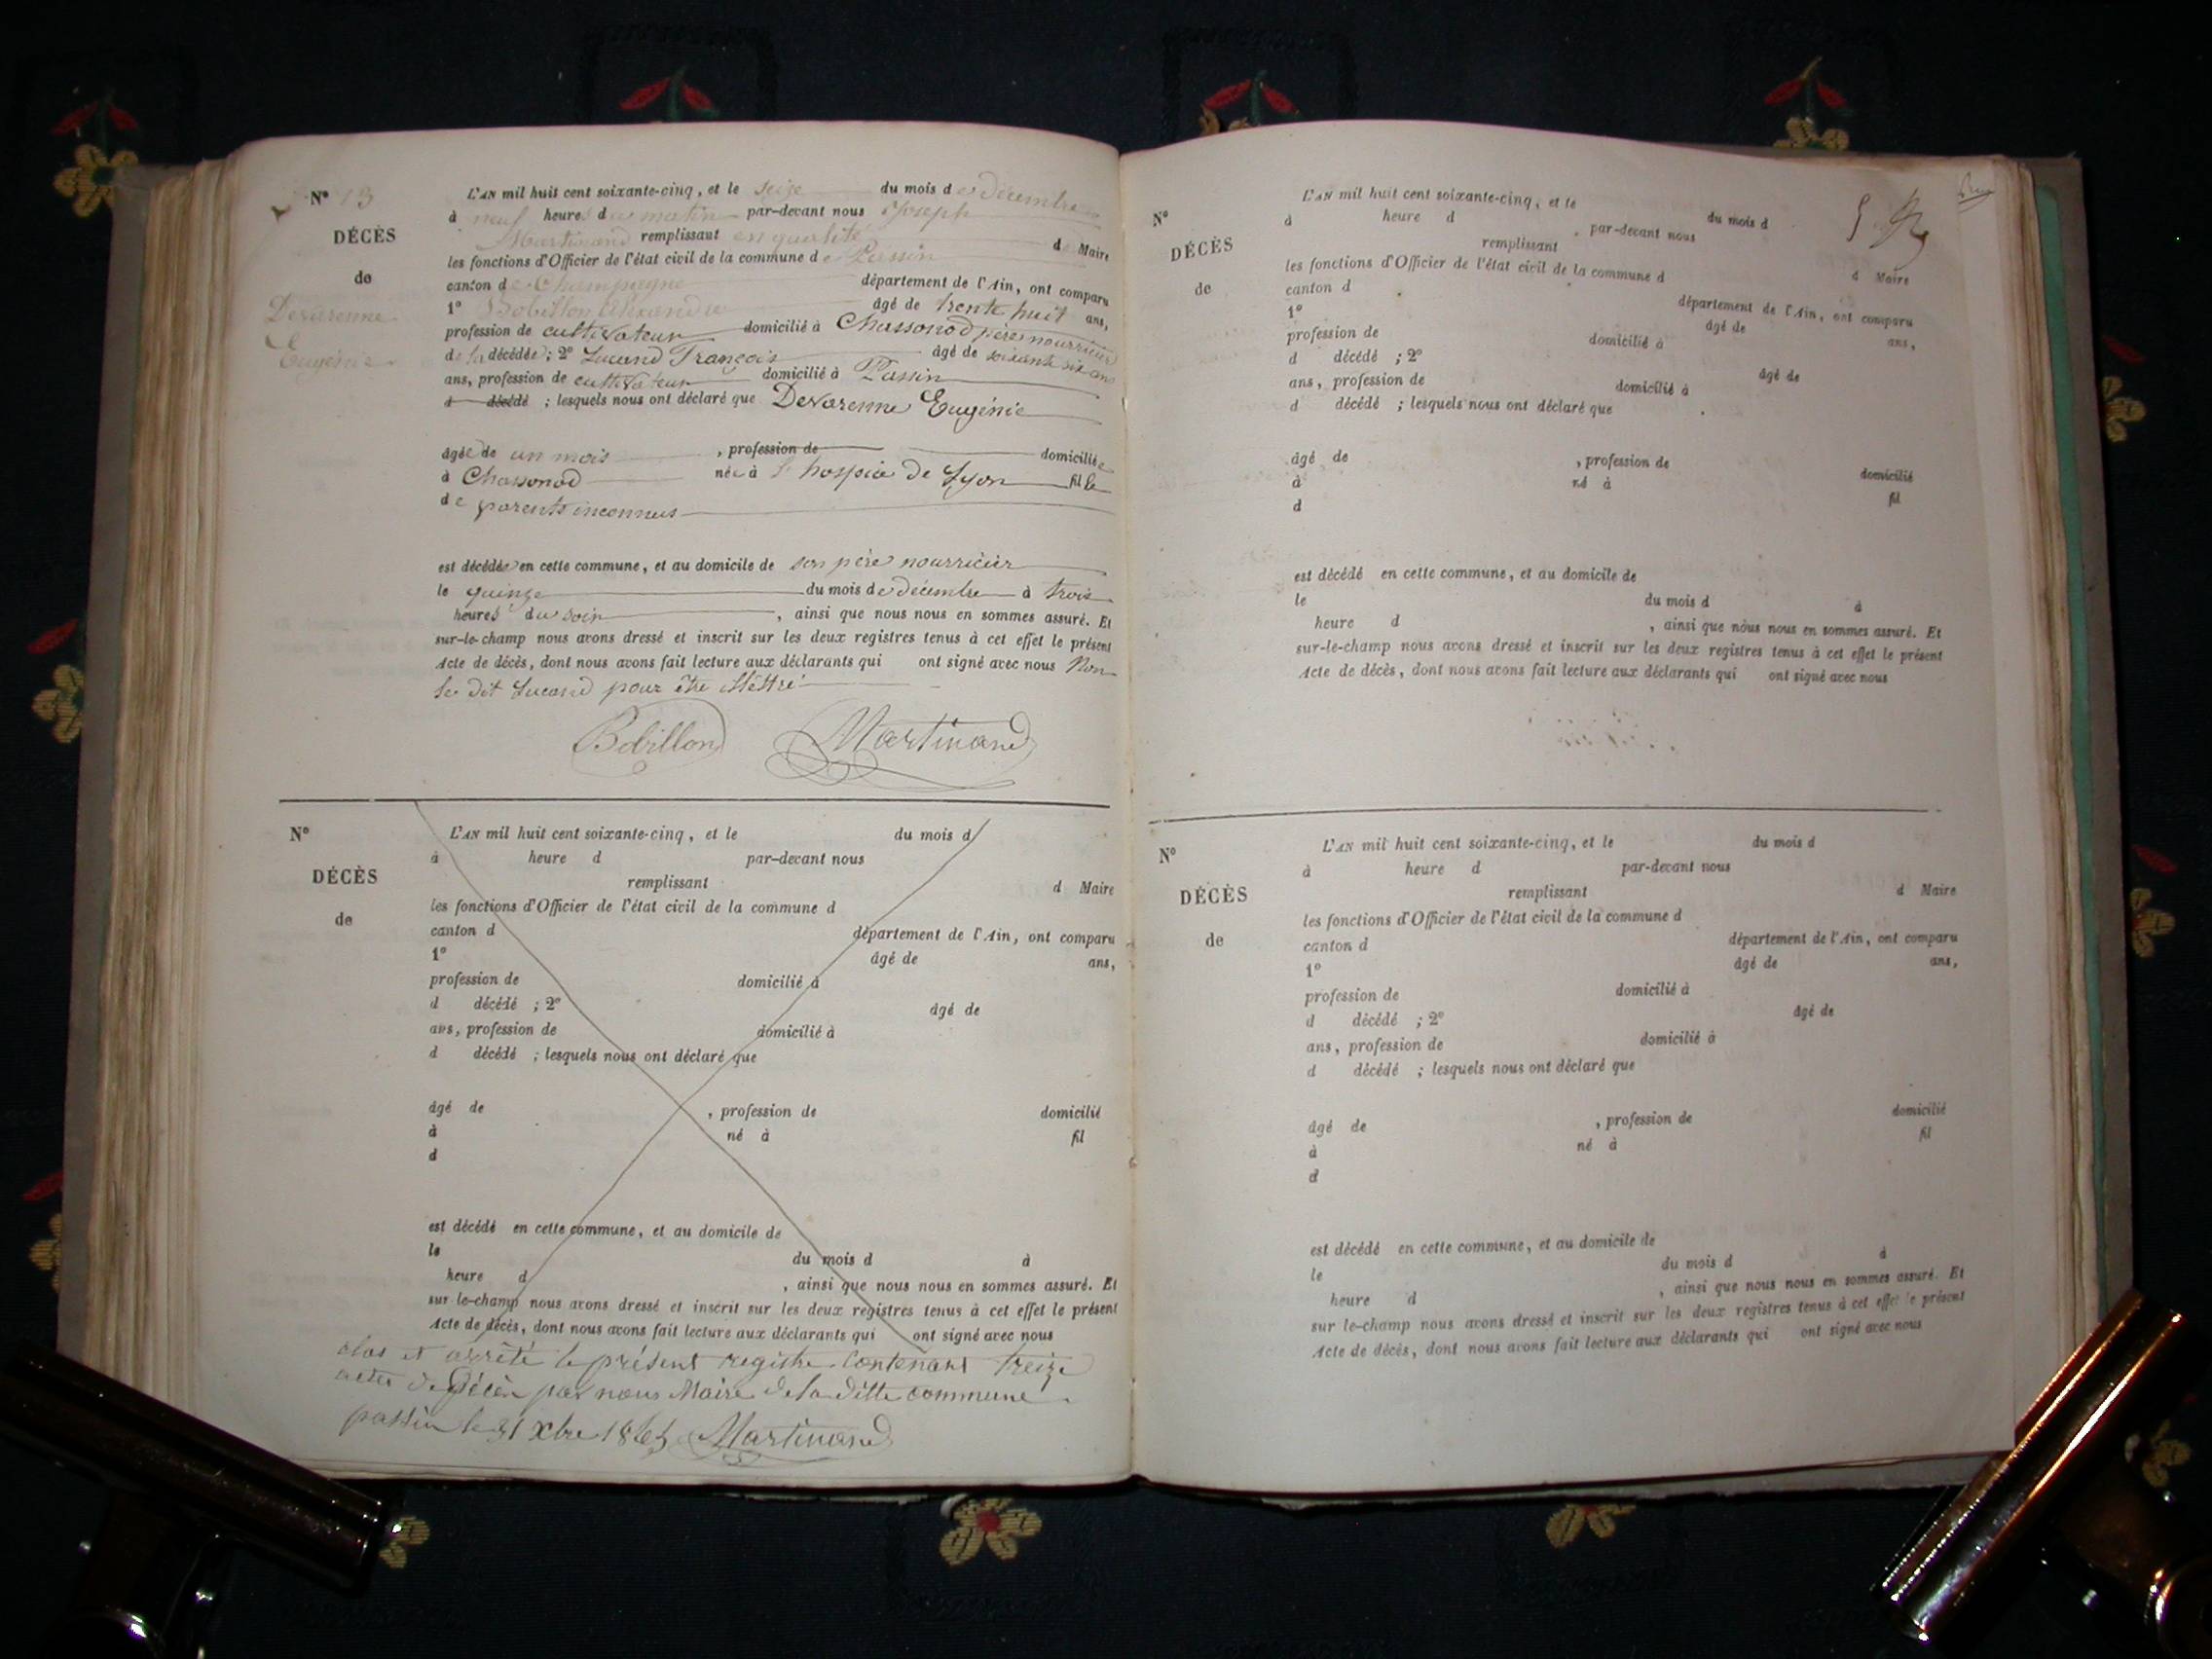 N° 13
DÉCÈS
de
Devarenne
Eugénie
L'AN mil huit cent soixante-cinq, et le seize du mois de décembre
à neuf heures du matin par-devant nous Joseph
Martinand remplissant en qualité de Maire
les fonctions d'Officier de l'état civil de la commune de Passin
canton de Champagne département de l'Ain, ont comparu
1° Bobillon Alexandre âgé de trente huit ans,
profession de cultivateur domicilié à Chassonod père nourricier
de la décédée; 2° Lucand François âgé de soixante six ans
ans, profession de cultivateur domicilié à Passin
d décédé ; lesquels nous ont déclaré que Devarenne Eugénie
âgée de un mois , profession de domiciliée
à Chassonod née à l'hospice de Lyon fille
de parents inconnus
est décédée en cette commune, et au domicile de son père nourricier
le quinze du mois de décembre à trois
heures du soir , ainsi que nous nous en sommes assuré. Et
sur-le-champ nous avons dressé et inscrit sur les deux registres tenus à cet effet le présent
Acte de décès, dont nous avons fait lecture aux déclarants qui ont signé avec nous Non
le dit Lucand pour être illettré
Bobillon Martinand
N°
DÉCÈS
de
L'AN mil huit cent soixante-cinq, et le du mois d
à heure d par-devant nous
remplissant d Maire
les fonctions d'Officier de l'état civil de la commune d
canton d département de l'Ain, ont comparu
1° âgé de ans,
profession de domicilié à
d décédé ; 2° âgé de
ans, profession de domicilié à
d décédé ; lesquels nous ont déclaré que
âgé de , profession de domicilié
à né à fil
d
est décédé en cette commune, et au domicile de
le du mois d à
heure d , ainsi que nous nous en sommes assuré. Et
sur-le-champ nous avons dressé et inscrit sur les deux registres tenus à cet effet le présent
Acte de décès, dont nous avons fait lecture aux déclarants qui ont signé avec nous
clos et arrêté le présent registre contenant treize
actes de décès par nous Maire de la ditte commune
passin le 31 Xbre 1865 Martinand
N°
DÉCÈS
de
L'AN mil huit cent soixante-cinq, et le du mois d
à heure d par-devant nous
remplissant d Maire
les fonctions d'Officier de l'état civil de la commune d
canton d département de l'Ain, ont comparu
1° âgé de ans,
profession de domicilié à
d décédé ; 2° âgé de
ans, profession de domicilié à
d décédé ; lesquels nous ont déclaré que
âgé de , profession de domicilié
à né à fil
d
est décédé en cette commune, et au domicile de
le du mois d à
heure d , ainsi que nous nous en sommes assuré. Et
sur-le-champ nous avons dressé et inscrit sur les deux registres tenus à cet effet le présent
Acte de décès, dont nous avons fait lecture aux déclarants qui ont signé avec nous
N°
DÉCÈS
de
L'AN mil huit cent soixante-cinq, et le du mois d
à heure d par-devant nous
remplissant d Maire
les fonctions d'Officier de l'état civil de la commune d
canton d département de l'Ain, ont comparu
1° âgé de ans,
profession de domicilié à
d décédé ; 2° âgé de
ans, profession de domicilié à
d décédé ; lesquels nous ont déclaré que
âgé de , profession de domicilié
à né à fil
d
est décédé en cette commune, et au domicile de
le du mois d à
heure d , ainsi que nous nous en sommes assuré. Et
sur le-champ nous avons dressé et inscrit sur les deux registres tenus à cet effet le présent
Acte de décès, dont nous avons fait lecture aux déclarants qui ont signé avec nous